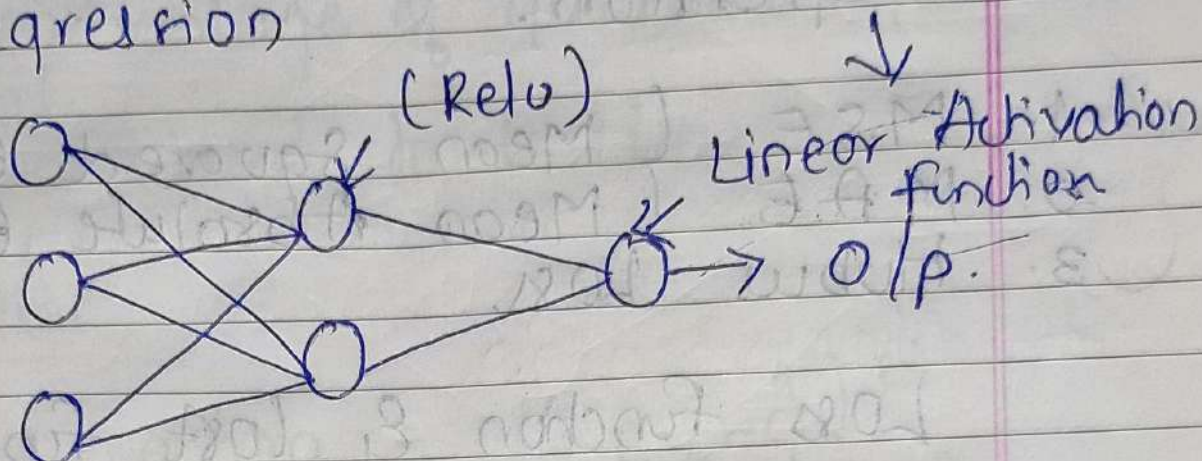 gression
(Relu)
Linear Activation
function
O/p.